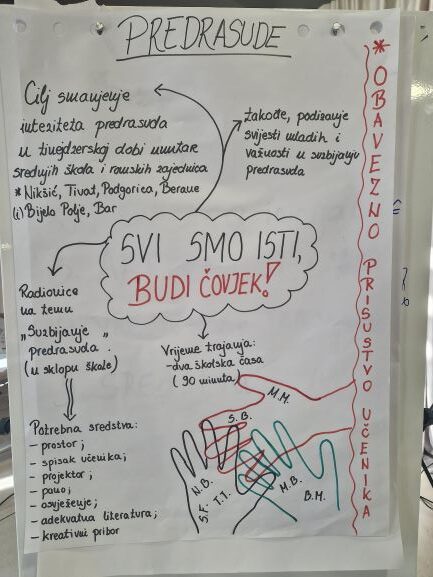 PREDRASUDE
Cilj smanjenje
inteziteta predrasuda
u tinejdzerskoj dobi unutar
srednjih škola i romskih zajednica
* Nikšić, Tivat, Podgorica, Berane
(i) Bijelo Polje, Bar
takođe, podizanje
svijesti mladih i
važnosti u suzbijanju
predrasuda
SVI SMO ISTI,
BUDI ČOVJEK!
Radionice
na temu
„Suzbijanje „
Predrasuda.
(u sklopu škole)
Vrijeme trajanja:
-dva školska časa
(90 minuta)
Potrebna sredstva:
- prostor;
- spisak učenika;
- projektor;
- pano;
- osvježenje;
- adekvatna literatura;
- kreativni pribor
M.M.
S.B.
N.B.
S.F.
T.T.
M.B.
B.M.
* OBAVEZNO PRISUSTVO UČENIKA